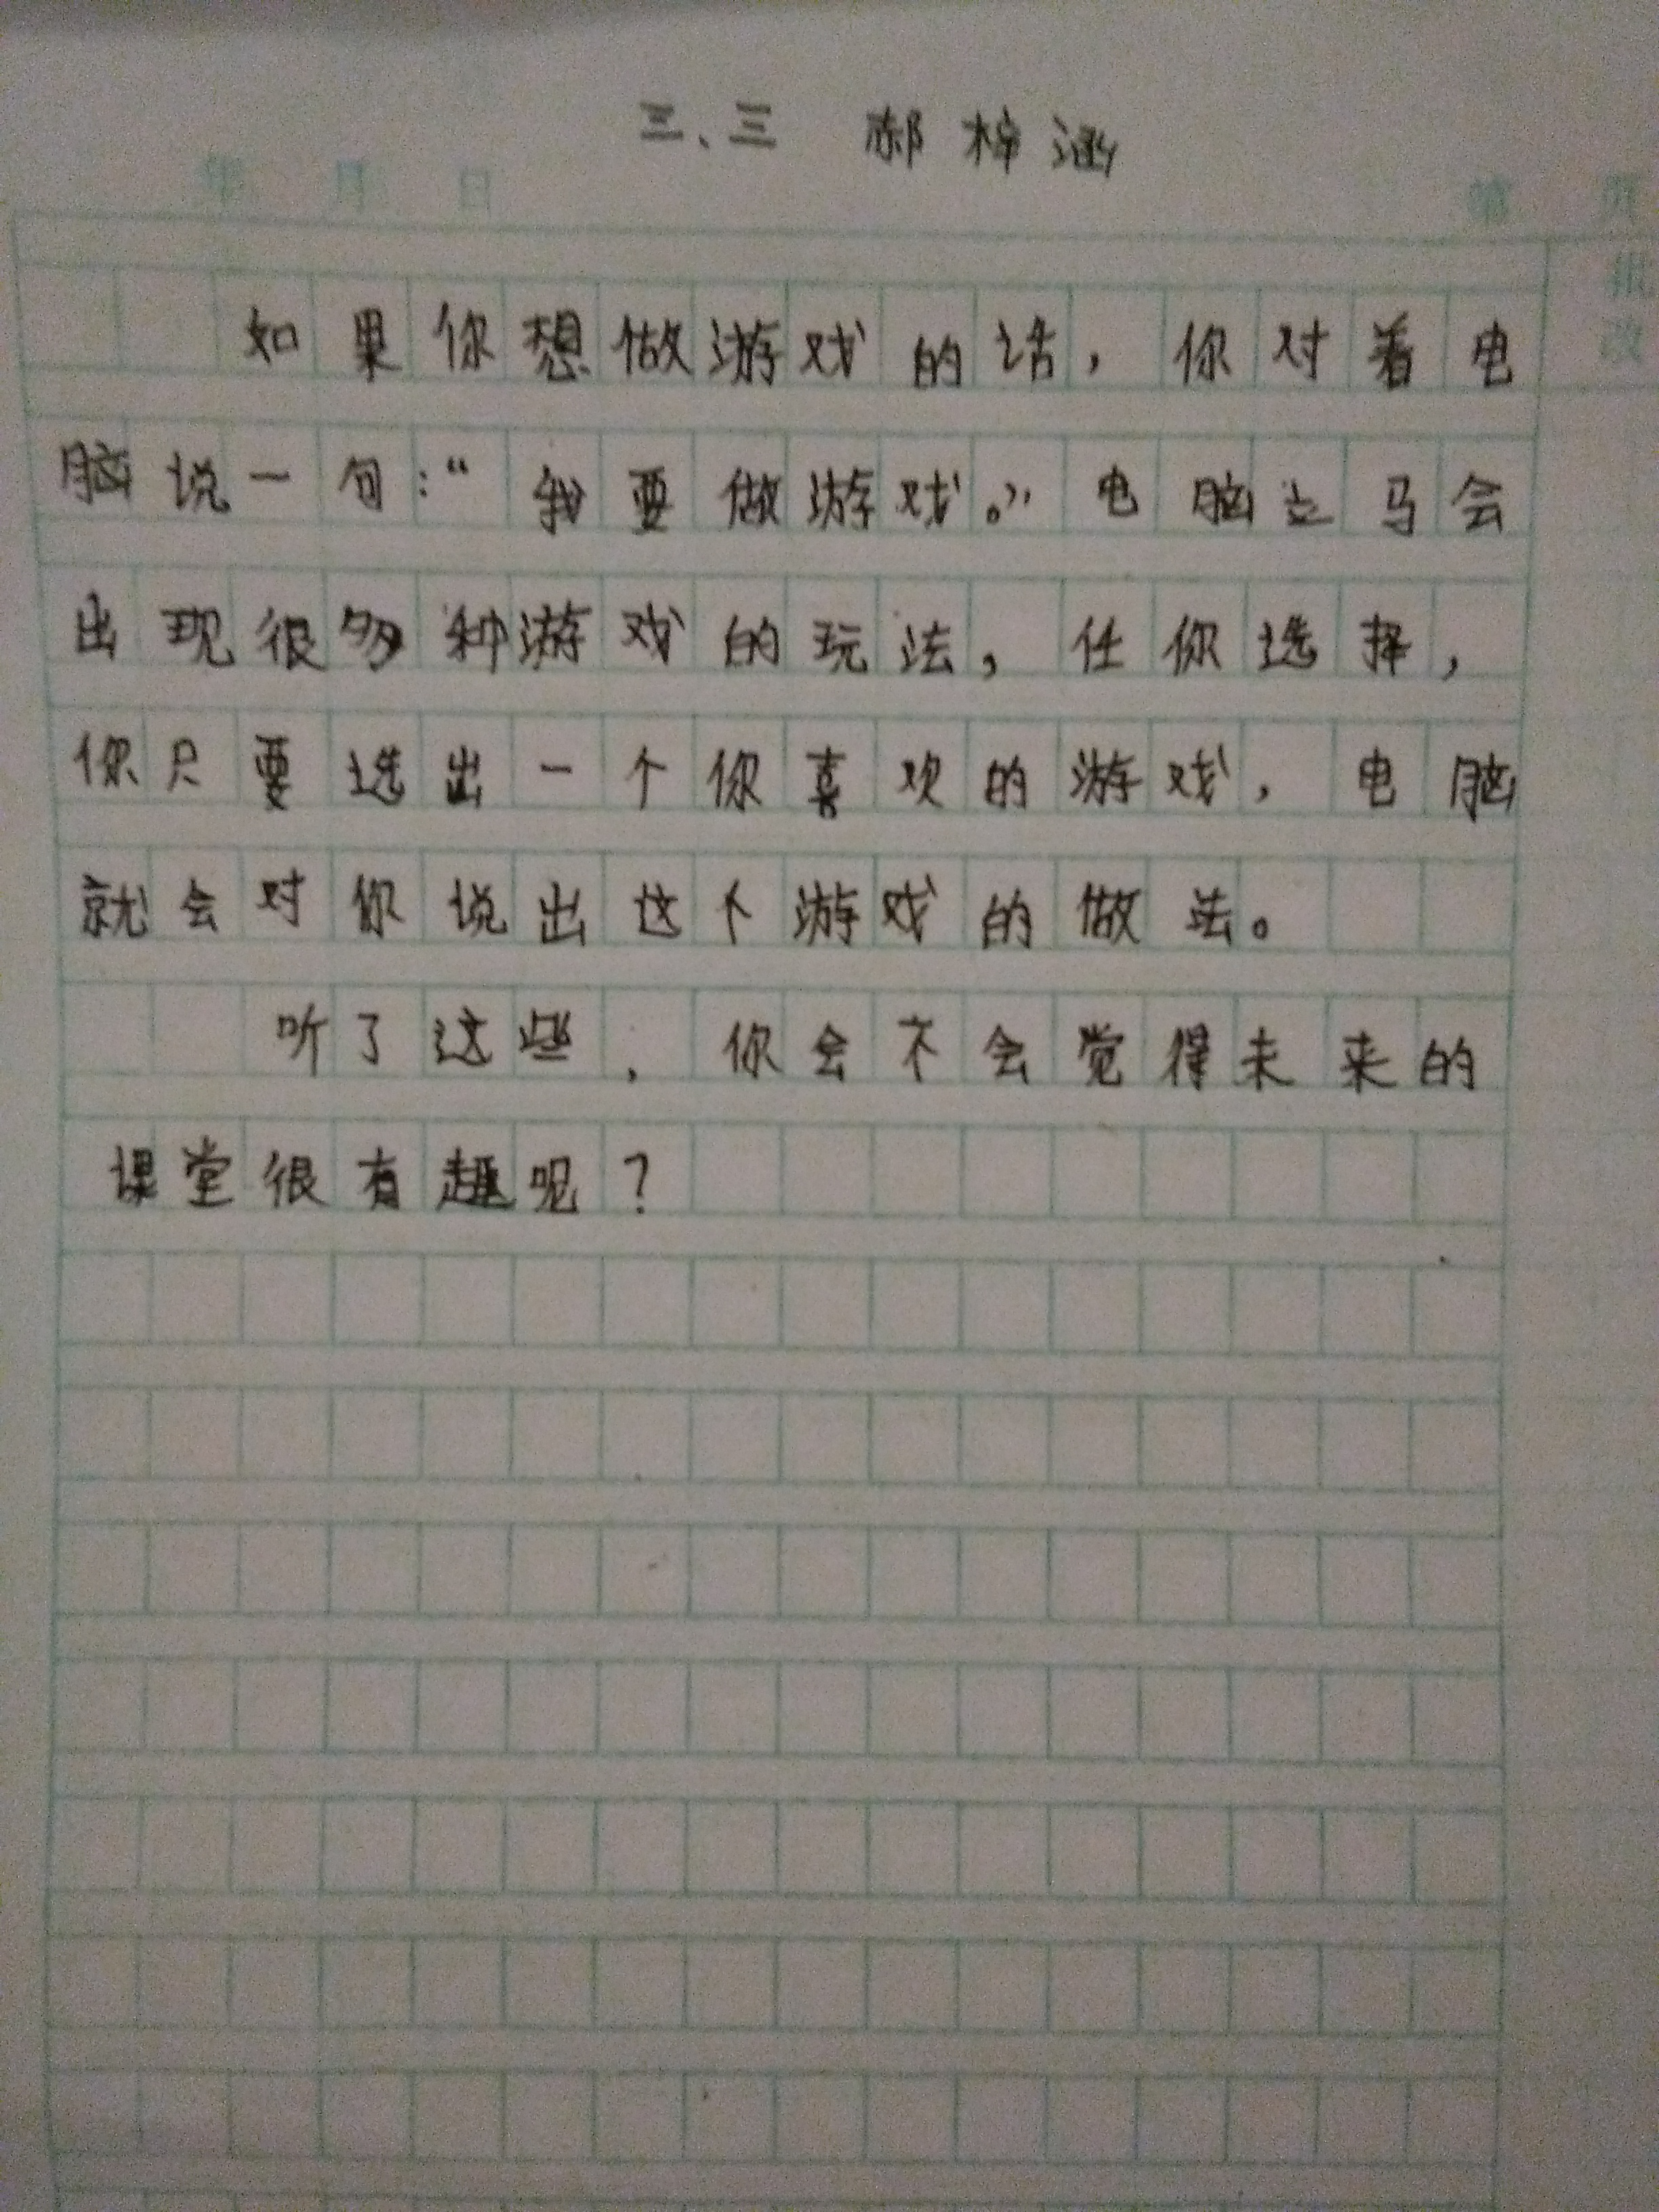 三、三 郝梓涵
年 月 日 第 页
批改
如果你想做游戏的话，你对着电
脑说一句：“我要做游戏。”电脑立马会
出现很多种游戏的玩法，任你选择，
你只要选出一个你喜欢的游戏，电脑
就会对你说出这个游戏的做法。
听了这些，你会不会觉得未来的
课堂很有趣呢？